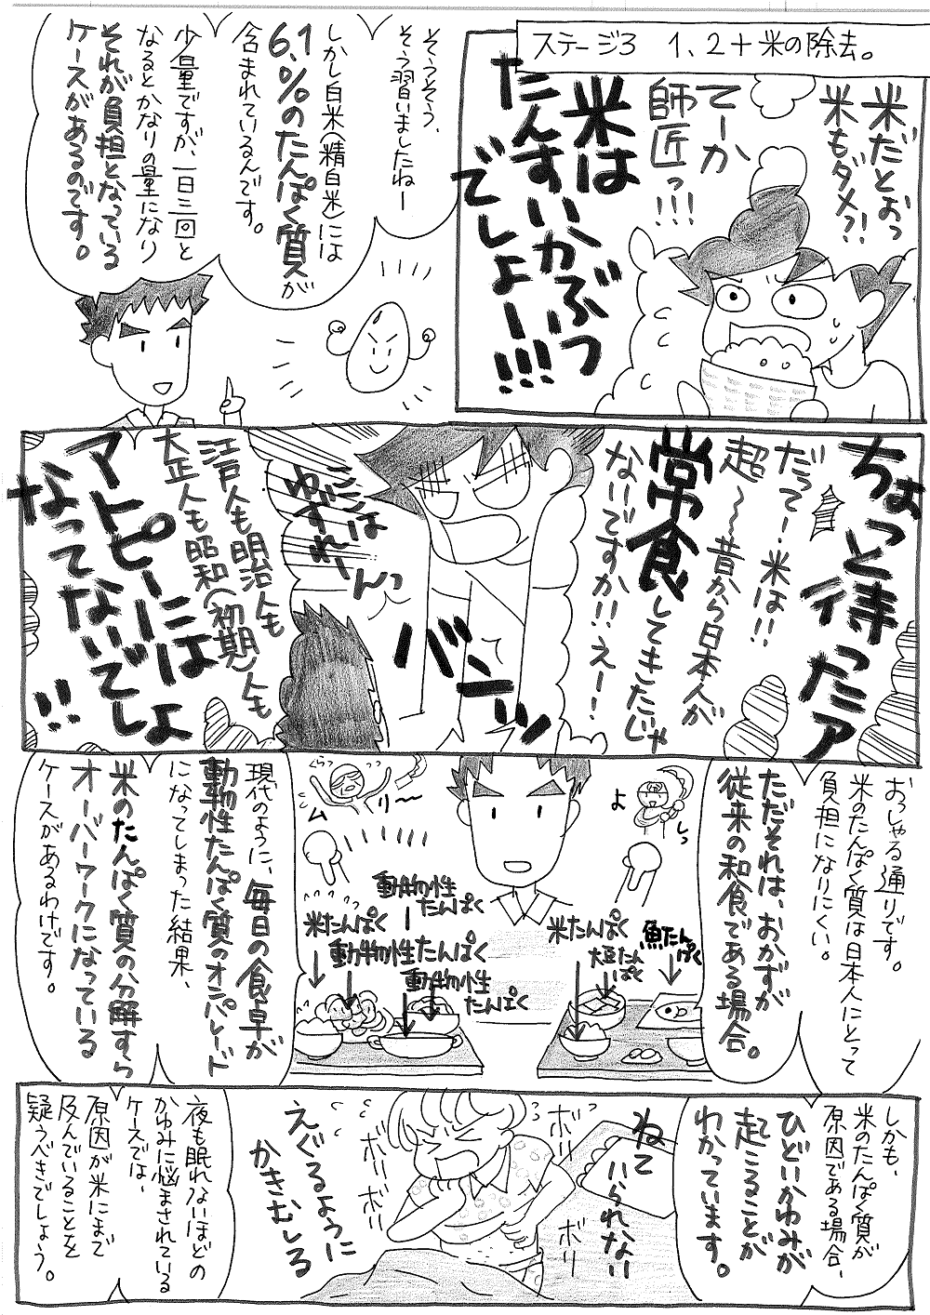 ステージ3 1、2+米の除去。
米だとぉっ
米もダメ?!
てーか
師匠っ!!!
米は
たんすいかぶつ
でしょー!!!
そうそう、
そう習いましたねー
しかし白米(精白米)には
6.1%のたんぱく質が
含まれているんです。
少量ですが、一日三回と
なるとかなりの量になり
それが負担となっている
ケースがあるのです。
ちょっと待ったァ
だって!米は!!
超〜〜昔から日本人が
常食してきたじゃ
ないですか!!えー!!
ここは
ゆずれーんっ
バンーッ
江戸人も明治人も
大正人も昭和(初期)人も
アトピーには
なってないでしょ
!!
おっしゃる通りです。
米のたんぱく質は日本人にとって
負担になりにくい。
ただそれは、おかずが
従来の和食である場合。
よ
っし
魚たんぱく
大豆たんぱく
米たんぱく
ぐらっ
ム
リ〜
動物性たんぱく
米たんぱく
動物性たんぱく
動物性たんぱく
現代のように、毎日の食卓が
動物性たんぱく質のオンパレード
になってしまった結果、
米のたんぱく質の分解すら
オーバーワークになっている
ケースがあるわけです。
しかも、
米のたんぱく質が
原因である場合、
ひどいかゆみが
起こることが
わかっています。
ねて
いられない
ボリ
ボリボリ
ボリ
ボリ
えぐるように
かきむしる
夜も眠れないほどの
かゆみに悩まされている
ケースでは、
原因が米にまで
及んでいることを
疑うべきでしょう。